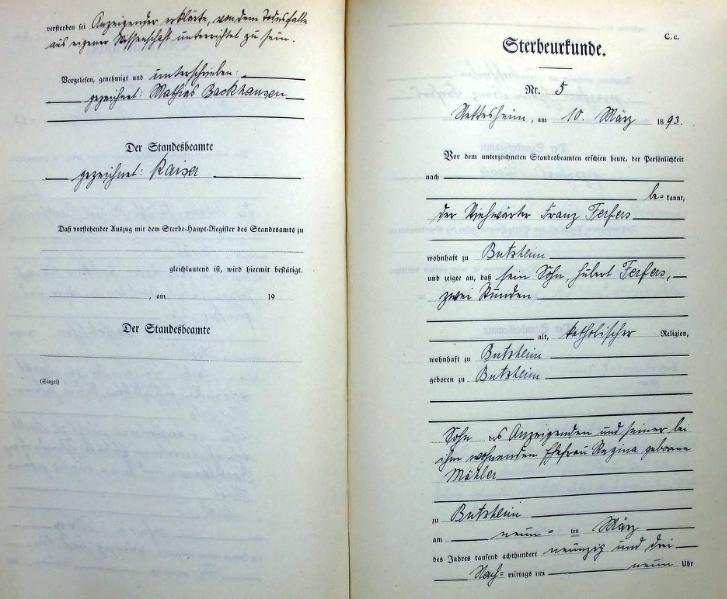 verstorben sei Anzeigender erklärte, von dem Todesfalle
aus eigener Wissenschaft unterrichtet zu sein.
Vorgelesen, genehmigt und unterschrieben:
gezeichnet: Mathias Backhausen
Der Standesbeamte
gezeichnet: Kaiser
Daß vorstehender Auszug mit dem Sterbe-Haupt-Register des Standesamts zu
gleichlautend ist, wird hiermit bestätigt.
, am 19
Der Standesbeamte
(Siegel)
C. c.
Sterbeurkunde.
Nr. 5
Nettesheim, am 10. März 1893.
Vor dem unterzeichneten Standesbeamten erschien heute, der Persönlichkeit
nach
be= kannt,
der Viehwärter Franz Ferfers
wohnhaft zu Butzheim
und zeigte an, daß sein Sohn, Hubert Ferfers,
zwei Stunden
alt, katholischer Religion,
wohnhaft zu Butzheim
geboren zu Butzheim
Sohn des Anzeigenden und seiner bei
ihm wohnenden Ehefrau Regina geborene
zu Butzheim
am neun= ten März
des Jahres tausend achthundert neunzig und drei
Nach= mittags um neun Uhr